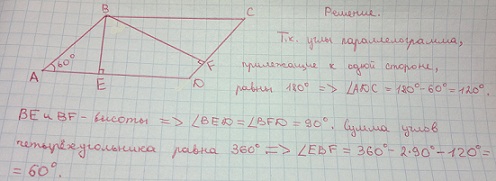 B
C
Решение.
Т.к. углы параллелограмма,
60°
F
прилежащие к одной стороне,
A
E
D
равны 180° => ∠ADC = 180° - 60° = 120°.
BE и BF - высоты => ∠BED = ∠BFD = 90°. Сумма углов
четырёхугольника равна 360° => ∠EBF = 360° - 2·90° - 120° =
= 60°.